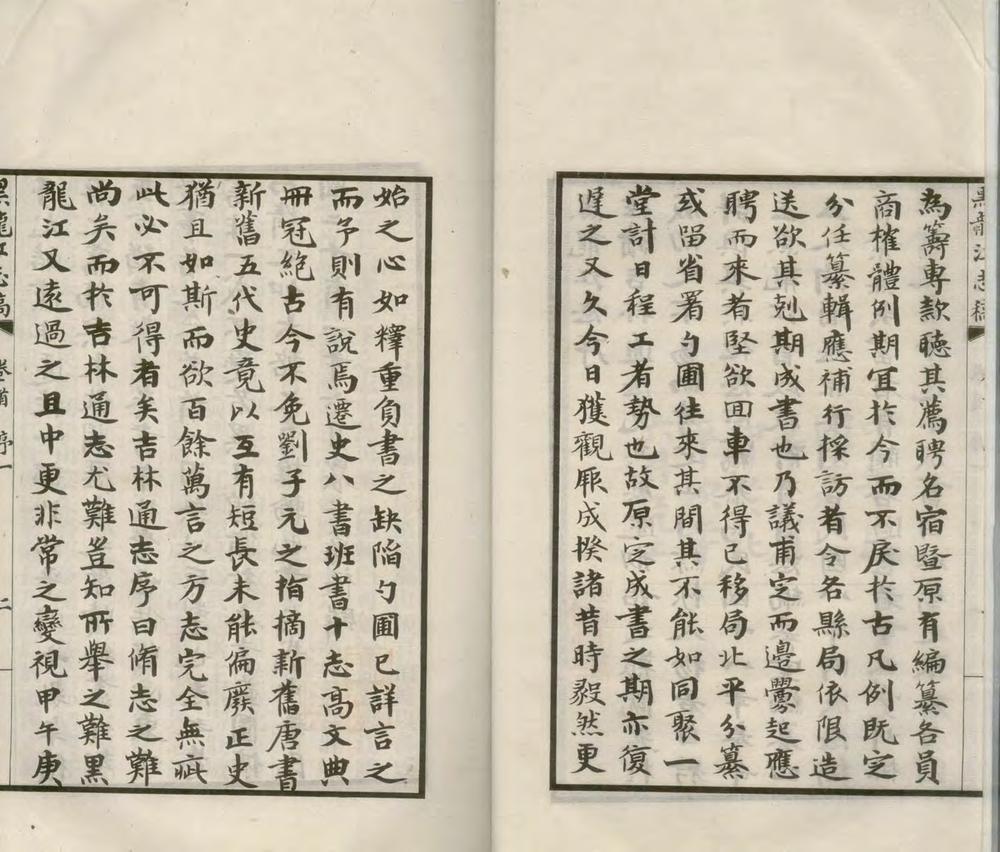 黑龍江志稿
為籌專款聽其薦聘名宿暨原有編纂各員
商榷體例期冝於今而不戾於古凡例既定
分任纂輯應補行採訪者令各縣局依限造
送欲其剋期成書也乃議甫定而邊釁起應
聘而來者堅欲回車不得已移局北平分纂
或留省署勺圃往來其間其不能如同聚一
堂計日程工者勢也故原定成書之期亦復
遲之又久今日獲觀厥成揆諸昔時毅然更
始之心如釋重負書之缺陷勺圃已詳言之
而予則有說焉遷史八書班書十志高文典
冊冠絕古今不免劉子元之指摘新舊唐書
新舊五代史竟以互有短長未能偏廢正史
猶且如斯而欲百餘萬言之方志完全無疵
此必不可得者矣吉林通志序曰脩志之難
尚矣而於吉林通志尤難豈知所舉之難黑
龍江又遠過之且中更非常之變視甲午庚
黑龍江志稿 卷首 序一 二